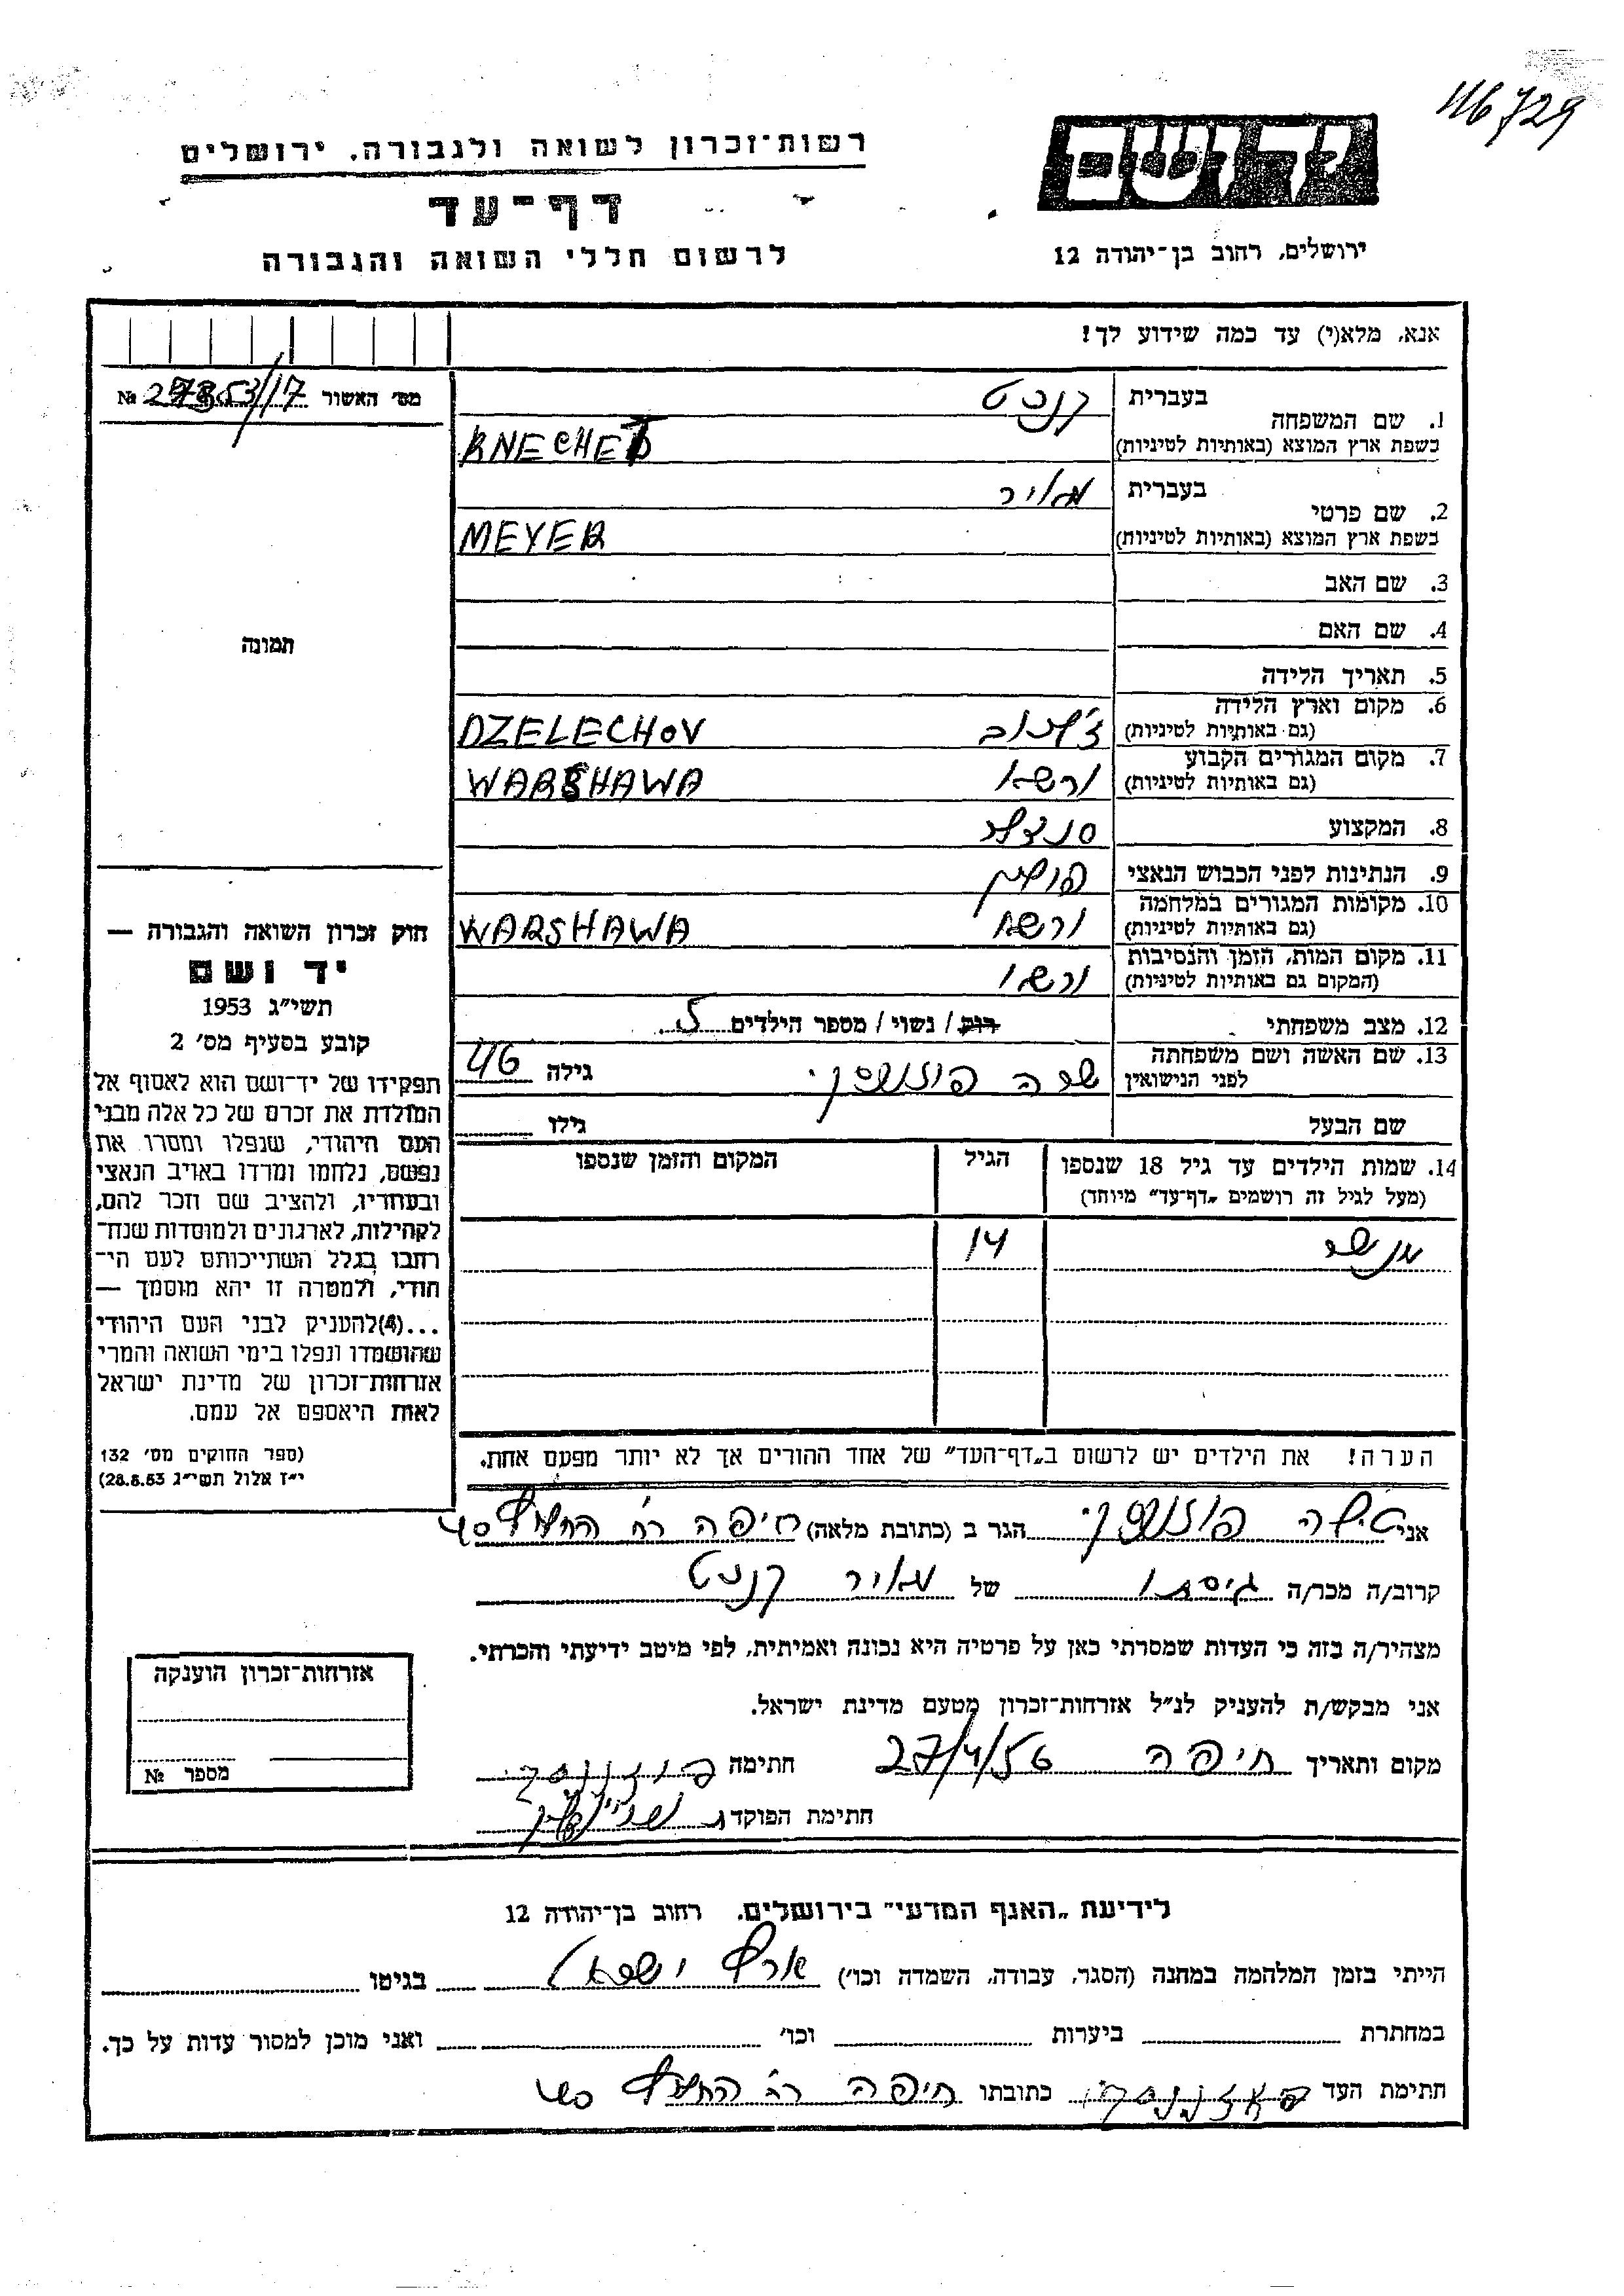 116729
יד ושם
רשות־זכרון לשואה ולגבורה. ירושלים
דף־עד
לרשום חללי השואה והגבורה
ירושלים, רחוב בן־יהודה 12
אנא, מלא(י) עד כמה שידוע לך!
מס' האשור №
1. שם המשפחה
בעברית קנכט
בשפת ארץ המוצא (באותיות לטיניות) KNECHET
2. שם פרטי
בעברית מאיר
בשפת ארץ המוצא (באותיות לטיניות) MEYER
3. שם האב
4. שם האם
תמונה
5. תאריך הלידה
6. מקום וארץ הלידה
(גם באותיות לטיניות) DZELECHOV
7. מקום המגורים הקבוע
(גם באותיות לטיניות) ורשא WARSHAWA
8. המקצוע סנדלר
9. הנתינות לפני הכבוש הנאצי
10. מקומות המגורים במלחמה
(גם באותיות לטיניות) ורשא WARSHAWA
11. מקום המות, הזמן והנסיבות
(המקום גם באותיות לטיניות) ורשא
12. מצב משפחתי רוק / נשוי / מספר הילדים 5
13. שם האשה ושם משפחתה
לפני הנישואין שרה פוזננסקי גילה 46
שם הבעל גילו
14. שמות הילדים עד גיל 18 שנספו
(מעל לגיל זה רושמים „דף־עד" מיוחד)
הגיל
המקום והזמן שנספו
מנשה 14
הערה! את הילדים יש לרשום ב„דף־העד" של אחד ההורים אך לא יותר מפעם אחת.
חוק זכרון השואה והגבורה —
יד ושם
תשי"ג 1953
קובע בסעיף מס' 2
תפקידו של יד־ושם הוא לאסוף אל
המולדת את זכרם של כל אלה מבני
העם היהודי, שנפלו ומסרו את
נפשם, נלחמו ומרדו באויב הנאצי
ובעוזריו, ולהציב שם וזכר להם,
לקהילות, לארגונים ולמוסדות שנח־
רבו בגלל השתייכותם לעם הי־
הודי, ולמטרה זו יהא מוסמך —
...(4)להעניק לבני העם היהודי
שהושמדו ונפלו בימי השואה והמרי
אזרחות־זכרון של מדינת ישראל
לאות היאספם אל עמם.
(ספר החוקים מס' 132
י"ז אלול תשי"ג 28.8.53)
אני פוזננסקי הגר ב (כתובת מלאה) חיפה רח החלוץ 40
קרוב/ה מכר/ה גיסתו של מאיר קנכט
מצהיר/ה בזה כי העדות שמסרתי כאן על פרטיה היא נכונה ואמיתית, לפי מיטב ידיעתי והכרתי.
אני מבקש/ת להעניק לנ"ל אזרחות־זכרון מטעם מדינת ישראל.
מקום ותאריך חיפה 27/4/56 חתימה פוזננסקי
חתימת הפוקד
אזרחות־זכרון הוענקה
מספר №
לידיעת „האגף המדעי" בירושלים. רחוב בן־יהודה 12
הייתי בזמן המלחמה במחנה (הסגר, עבודה, השמדה וכו') ארץ ישראל בגיטו
במחתרת ביערות וכו' ואני מוכן למסור עדות על כך.
חתימת העד פוזננסקי כתובתו חיפה רח החלוץ 40